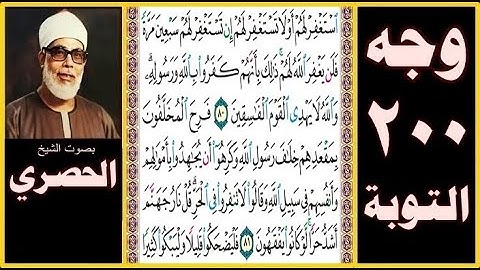 وجه
٢٠٠
التوبة
بصوت الشيخ
الحصري
ٱسۡتَغۡفِرۡ لَهُمۡ أَوۡ لَا تَسۡتَغۡفِرۡ لَهُمۡ إِن تَسۡتَغۡفِرۡ لَهُمۡ سَبۡعِينَ مَرَّةٗ
فَلَن يَغۡفِرَ ٱللَّهُ لَهُمۡۚ ذَٰلِكَ بِأَنَّهُمۡ كَفَرُواْ بِٱللَّهِ وَرَسُولِهِۦۗ
وَٱللَّهُ لَا يَهۡدِي ٱلۡقَوۡمَ ٱلۡفَٰسِقِينَ ٨٠ فَرِحَ ٱلۡمُخَلَّفُونَ
بِمَقۡعَدِهِمۡ خِلَٰفَ رَسُولِ ٱللَّهِ وَكَرِهُوٓاْ أَن يُجَٰهِدُواْ بِأَمۡوَٰلِهِمۡ
وَأَنفُسِهِمۡ فِي سَبِيلِ ٱللَّهِ وَقَالُواْ لَا تَنفِرُواْ فِي ٱلۡحَرِّۗ قُلۡ نَارُ جَهَنَّمَ
أَشَدُّ حَرّٗاۚ لَّوۡ كَانُواْ يَفۡقَهُونَ ٨١ فَلۡيَضۡحَكُواْ قَلِيلٗا وَلۡيَبۡكُواْ كَثِيرٗا